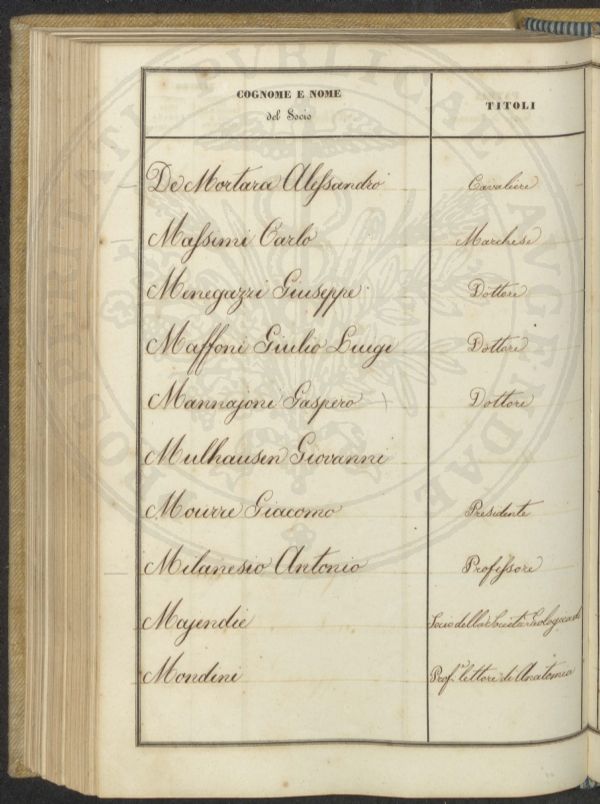 COGNOME E NOME
del Socio
TITOLI
De Mortara Alessandro Cavaliere
Massimi Carlo Marchese
Menegazzi Giuseppe Dottore
Maffoni Giulio Luigi Dottore
Mannajoni Gaspero Dottore
Mulhausen Giovanni
Mourre Giacomo Presidente
Milanesio Antonio Professore
Majendie Socio della Società Geologica di
Mondini Prof.e lettore di Anatomia
PROSPERITATI PUBLICAE AUGENDAE